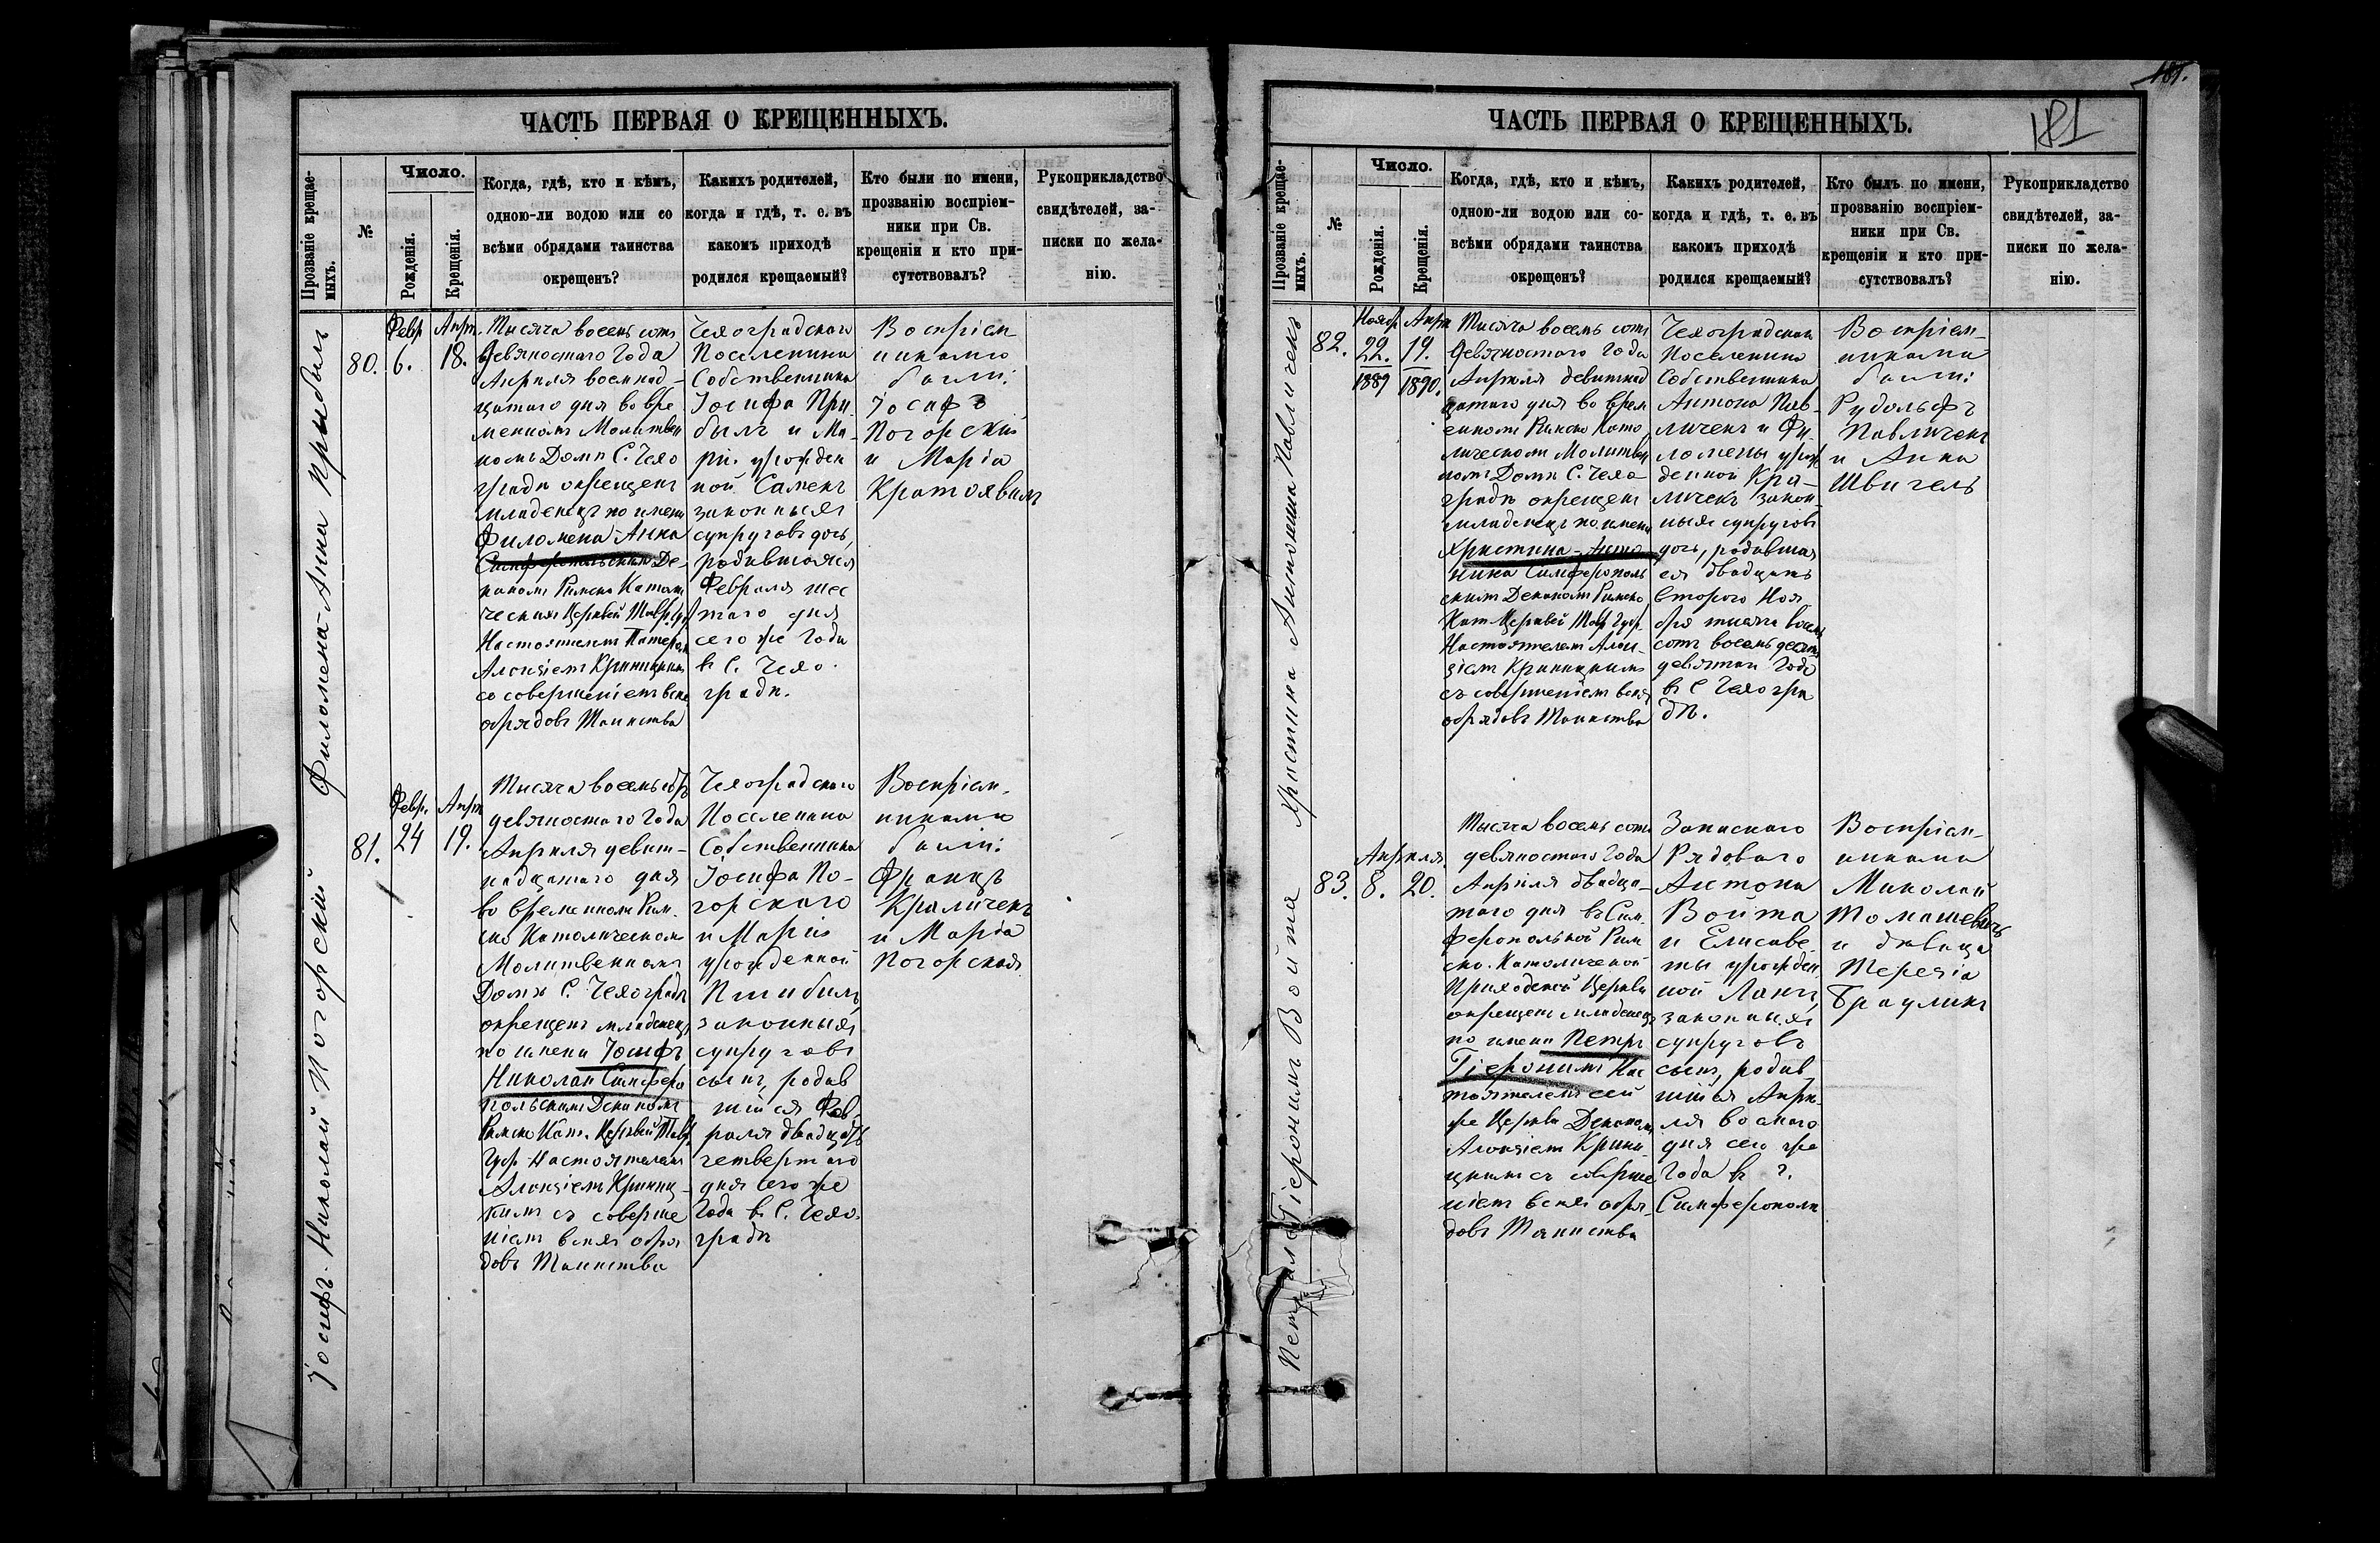 ЧАСТЬ ПЕРВАЯ О КРЕЩЕННЫХЪ.
Прозваніе крещае-
мыхъ.
№
Число.
Рожденія.
Крещенія.
Когда, гдѣ, кто и кѣмъ,
одною-ли водою или со
всѣми обрядами таинства
окрещенъ?
Какихъ родителей,
когда и гдѣ, т. е. въ
какомъ приходѣ
родился крещаемый?
Кто были по имени,
прозванію воспріем-
ники при Св.
крещеніи и кто при-
сутствовалъ?
Рукоприкладство
свидѣтелей, за-
писки по жела-
нію.
Филомена-Анна Прыбыль
80.
Февр
6.
Апр.
18.
Тысяча восемь сотъ
девяностаго Года
Апрѣля восемнад-
цатаго дня во вре
менномъ Молитвен
номъ Домѣ С. Чехо
градѣ окрещенъ
младенецъ по имени
Филомена-Анна
Симферопольскимъ Де-
каномъ Римско Католи
ческихъ Церквей Тавр. Губ
Настоятелемъ Патеромъ
Алоизіемъ Криницкимъ
со совершеніемъ всѣхъ
обрядовъ Таинства
Чехоградскаго
Поселенина
Собственника
Іосифа При-
былъ и Ма-
ріи урожден
ной Саменъ
законныхъ
супруговъ дочь,
родившаяся
Февраля шес
таго дня
сего же Года
въ С. Чехо-
градѣ.
Воспріем
никами
были:
Іосифъ
Погорскій
и Марія
Кратохвиль
Іосифъ-Николай Погорскій
81.
Февр.
24
Апр
19.
Тысяча восемь сотъ
девяностаго Года
Апрѣля девят-
надцатаго дня
во временномъ Рим-
ско Католическомъ
Молитвенномъ
Домѣ С. Чехоградѣ
окрещенъ младенецъ
по имени Іосифъ
Николай Симферо
польскимъ Деканомъ
Римско Кат. Церквей Тавр.
Губ. Настоятелемъ
Алоизіемъ Криниц-
кимъ съ соверше
ніемъ всѣхъ обря
довъ Таинства
Чехоградскаго
Поселенина
Собственника
Іосифа По-
горскаго
и Маріи
урожденной
Пшибылъ
законныхъ
супруговъ
сынъ, родив
шійся Фев-
раля двадцать
четвертаго
дня сего же
Года въ С. Чехо-
градѣ
Воспріем-
никами
были:
Францъ
Краличекъ
и Марія
Погорская
181.
ЧАСТЬ ПЕРВАЯ О КРЕЩЕННЫХЪ.
181
Прозваніе крещае-
мыхъ.
№
Число.
Рожденія.
Крещенія.
Когда, гдѣ, кто и кѣмъ,
одною-ли водою или со-
всѣми обрядами таинства
окрещенъ?
Какихъ родителей,
когда и гдѣ, т. е. въ
какомъ приходѣ
родился крещаемый?
Кто былъ по имени,
прозванію воспріем-
ники при Св.
крещеніи и кто при-
сутствовалъ?
Рукоприкладство
свидѣтелей, за-
писки по жела-
нію.
Христина Антонина Павличекъ
82.
Ноябр
22.
1889
Апр
19.
1890.
Тысяча восемь сотъ
девяностаго Года
Апрѣля девятнад
цатаго дня во врем
енномъ Римско Като
лическомъ Молитвен
номъ Домѣ С. Чехо-
градѣ окрещенъ
младенецъ по имени
Христина-Анто-
нина Симферополь
скимъ Деканомъ Римско
Кат. Церквей Тавр Губ.
Настоятелемъ Алои-
зіемъ Криницкимъ
съ совершеніемъ всѣхъ
обрядовъ Таинства
Чехоградскаго
Поселенина
Собственника
Антона Пав-
личекъ и Фи-
ломены урож
денной Кра-
личекъ закон
ныхъ супруговъ
дочь, родивша
яся двадцать
второго Ноя
бря тысяча восемь
сотъ восемьдесятъ
девятаго Года
въ С Чехогра
дѣ.
Воспріем-
никами
были:
Рудольфъ
Павличекъ
и Анна
Швигель
Петръ Іеронимъ Войта
83.
Апрѣля
8.
20.
Тысяча восемь сотъ
девяностаго Года
Апрѣля двадца-
таго дня въ Сим-
феропольской Рим
ско-Католической
Приходской Церкви
окрещенъ младенецъ
по имени Петръ
Іеронимъ Нас
тоятелемъ сей
же Церкви Деканомъ
Алоизіемъ Крини-
цкимъ съ соверше
ніемъ всѣхъ обря-
довъ Таинства
Запаснаго
Рядового
Антона
Войта
и Елисаве-
ты урожден
ной Лангъ,
законныхъ
супруговъ
сынъ, родив
шійся Апрѣ-
ля восьмаго
дня сего же
Года въ г.
Симферополѣ
Воспріем-
никами
Николай
Томашевичъ
и дѣвица
Терезія
Браулинъ